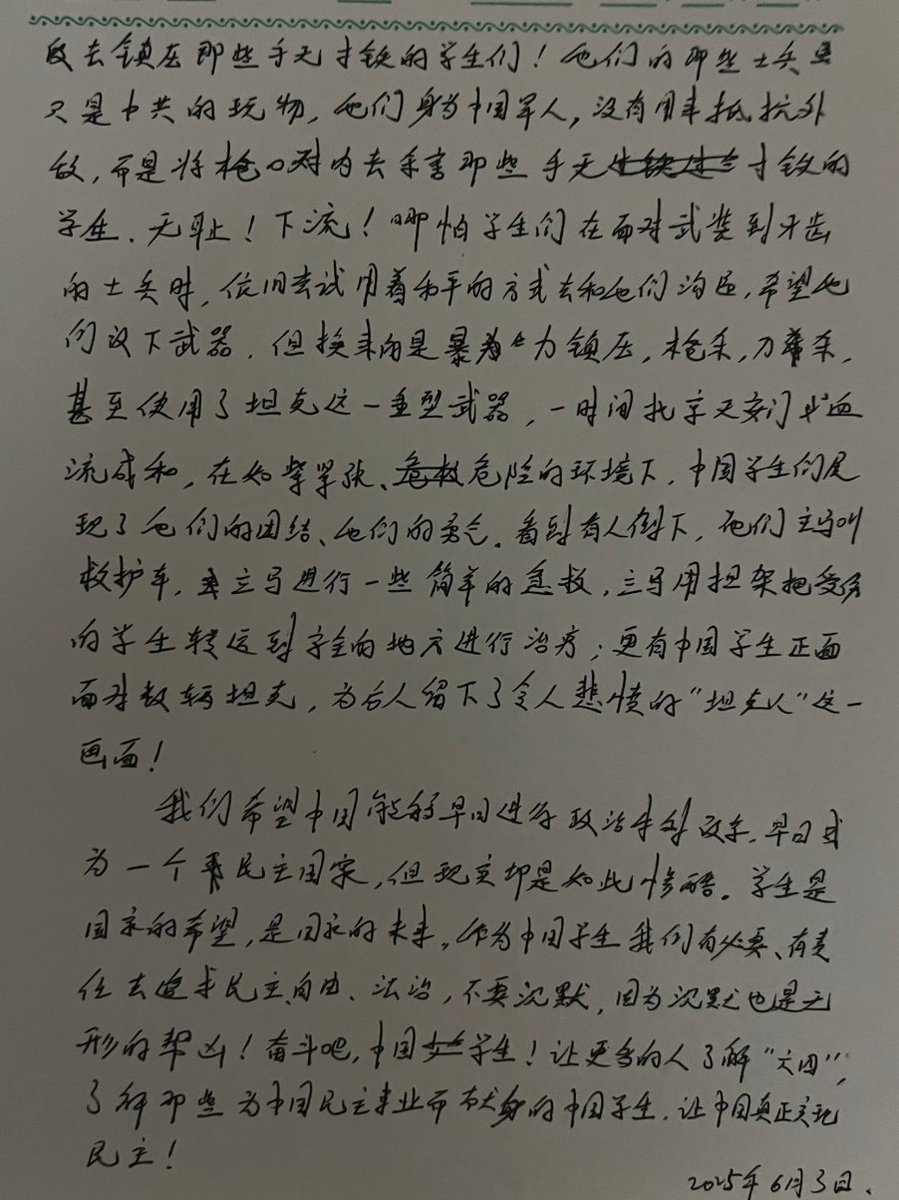 段去镇压那些手无寸铁的学生们！他们的那些士兵
只是中共的玩物，他们身为中国军人，没有用来抵抗外
敌，而是将枪口对内去杀害那些手无寸铁的
学生．无耻！下流！哪怕学生们在面对武装到牙齿
的士兵时，依旧尝试用着和平的方式去和他们沟通，希望他
们放下武器．但换来的是暴力镇压，枪杀，刀杀，
甚至使用了坦克这一重型武器，一时间北京天安门血
流成河，在如紧张、危险的环境下，中国学生们展
现了他们的团结、他们的勇气．看到有人倒下，他们立马叫
救护车，立马进行一些简单的急救，立马用担架把受伤
的学生转运到安全的地方进行治疗；更有中国学生正面
面对数辆坦克，为后人留下了令人悲愤的“坦克人”这一
画面！
我们希望中国能够早日进行政治体制改革．早日成
为一个民主国家，但现实却是如此惨酷．学生是
国家的希望，是国家的未来，作为中国学生我们有必要、有责
任去追求民主、自由、法治，不要沉默，因为沉默也是无
形的帮凶！奋斗吧，中国学生！让更多的人了解“六四”，
了解那些为中国民主事业而献身的中国学生．让中国真正实现
民主！
2025年6月3日．